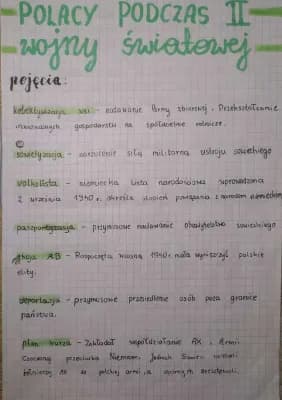 POLACY PODCZAS II
wojny światowej
pojęcia:
kolektywizacja wsi - nadawanie formy zbiorowej. Przekształcenie
indywidualnych gospodarstw na spółdzielnie rolnicze.
sowietyzacja - narzucenie siłą militarną ustroju sowieckiego
volkslista - niemiecka lista narodowościowa wprowadzona
2 września 1940r. określa stopień powiązania z narodem niemieckim
paszportyzacja - przymusowe nadawanie obywatelstwa sowieckiego
akcja AB - Rozpoczęta wiosną 1940r. miała wyniszczyć polskie
elity.
deportacja - przymusowe przesiedlenie osób poza granice
państwa.
plan burza - Zakładał współdziałanie AK i Armii
Czerwonej przeciwko Niemcom. Jednak Sowieci
żołnierzy AK do polskiej armii, a opornych